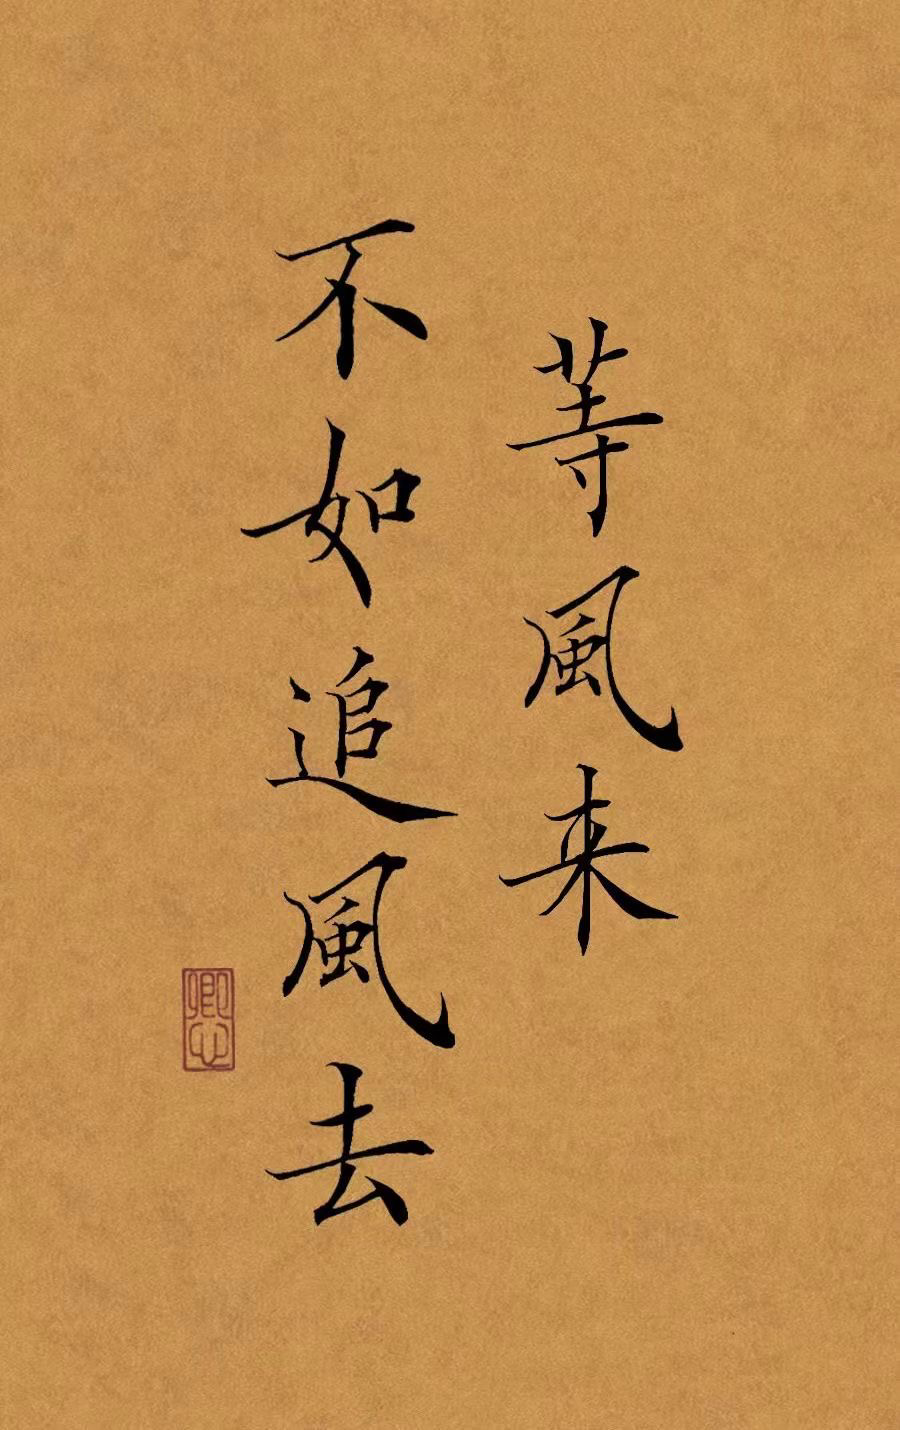 等風来
不如追風去
卿心